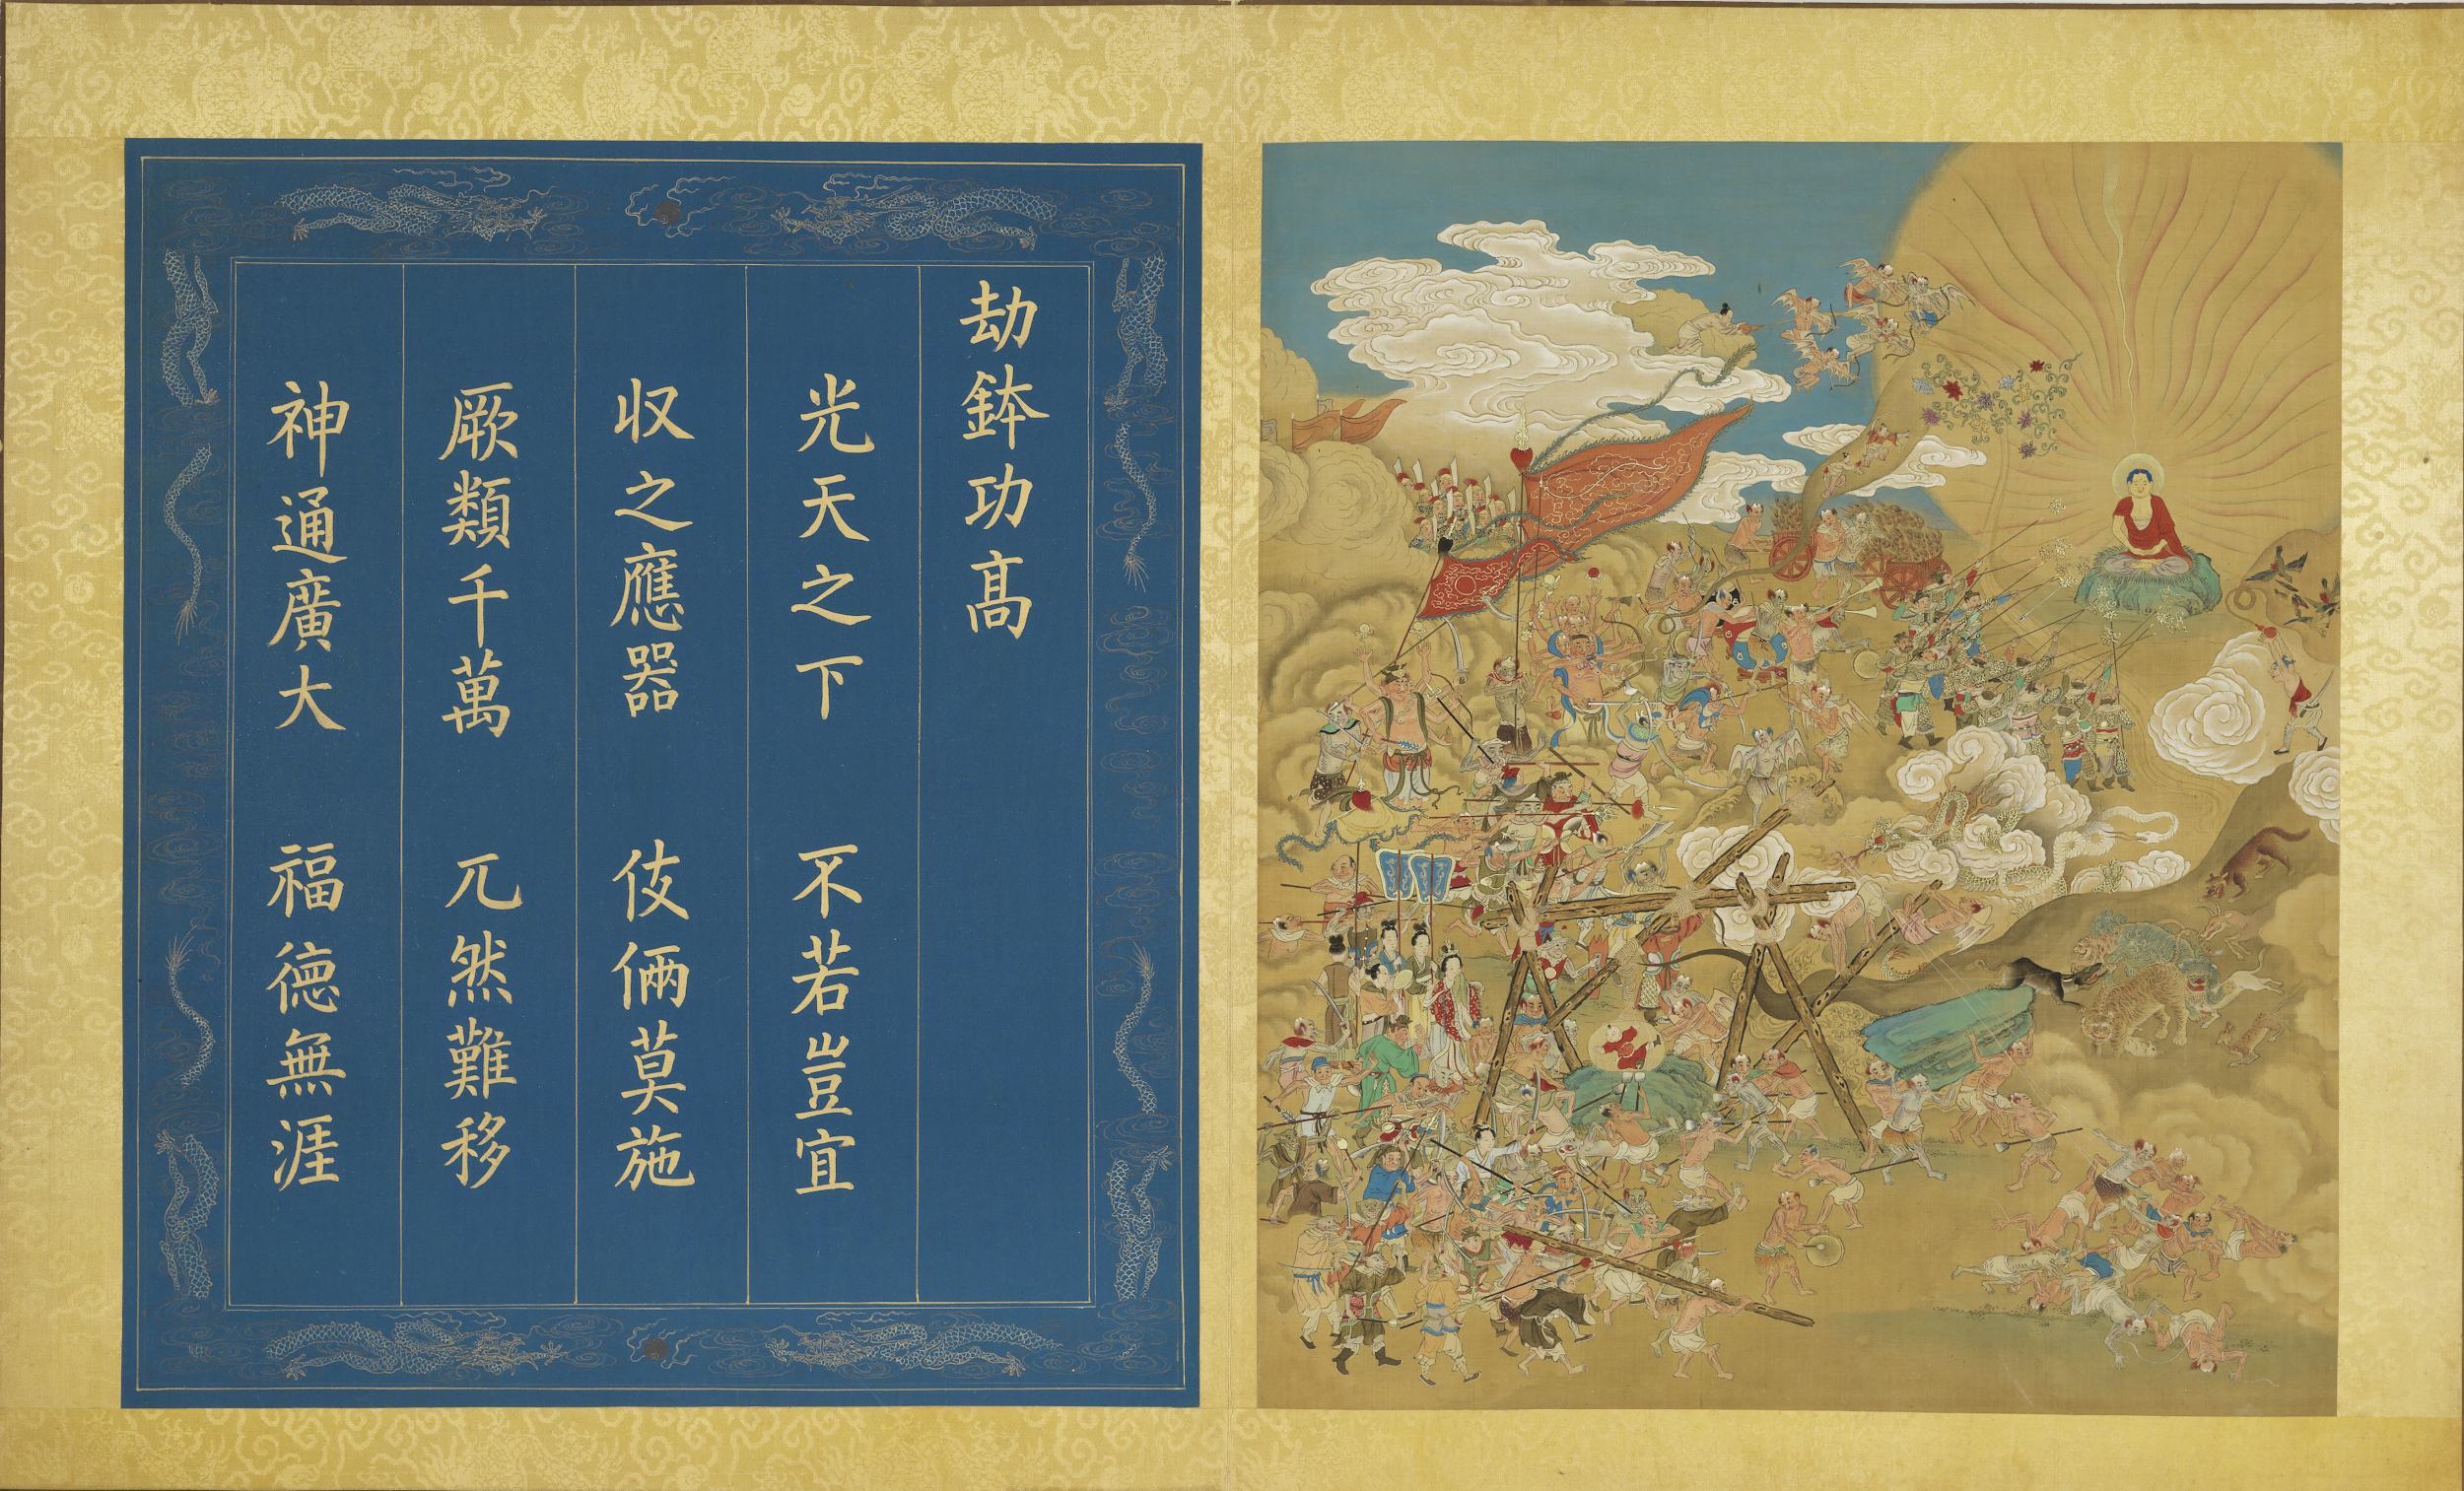 劫鉢功高
光天之下　不若豈宜
収之應器　伎倆莫施
厥類千萬　兀然難移
神通廣大　福徳無涯